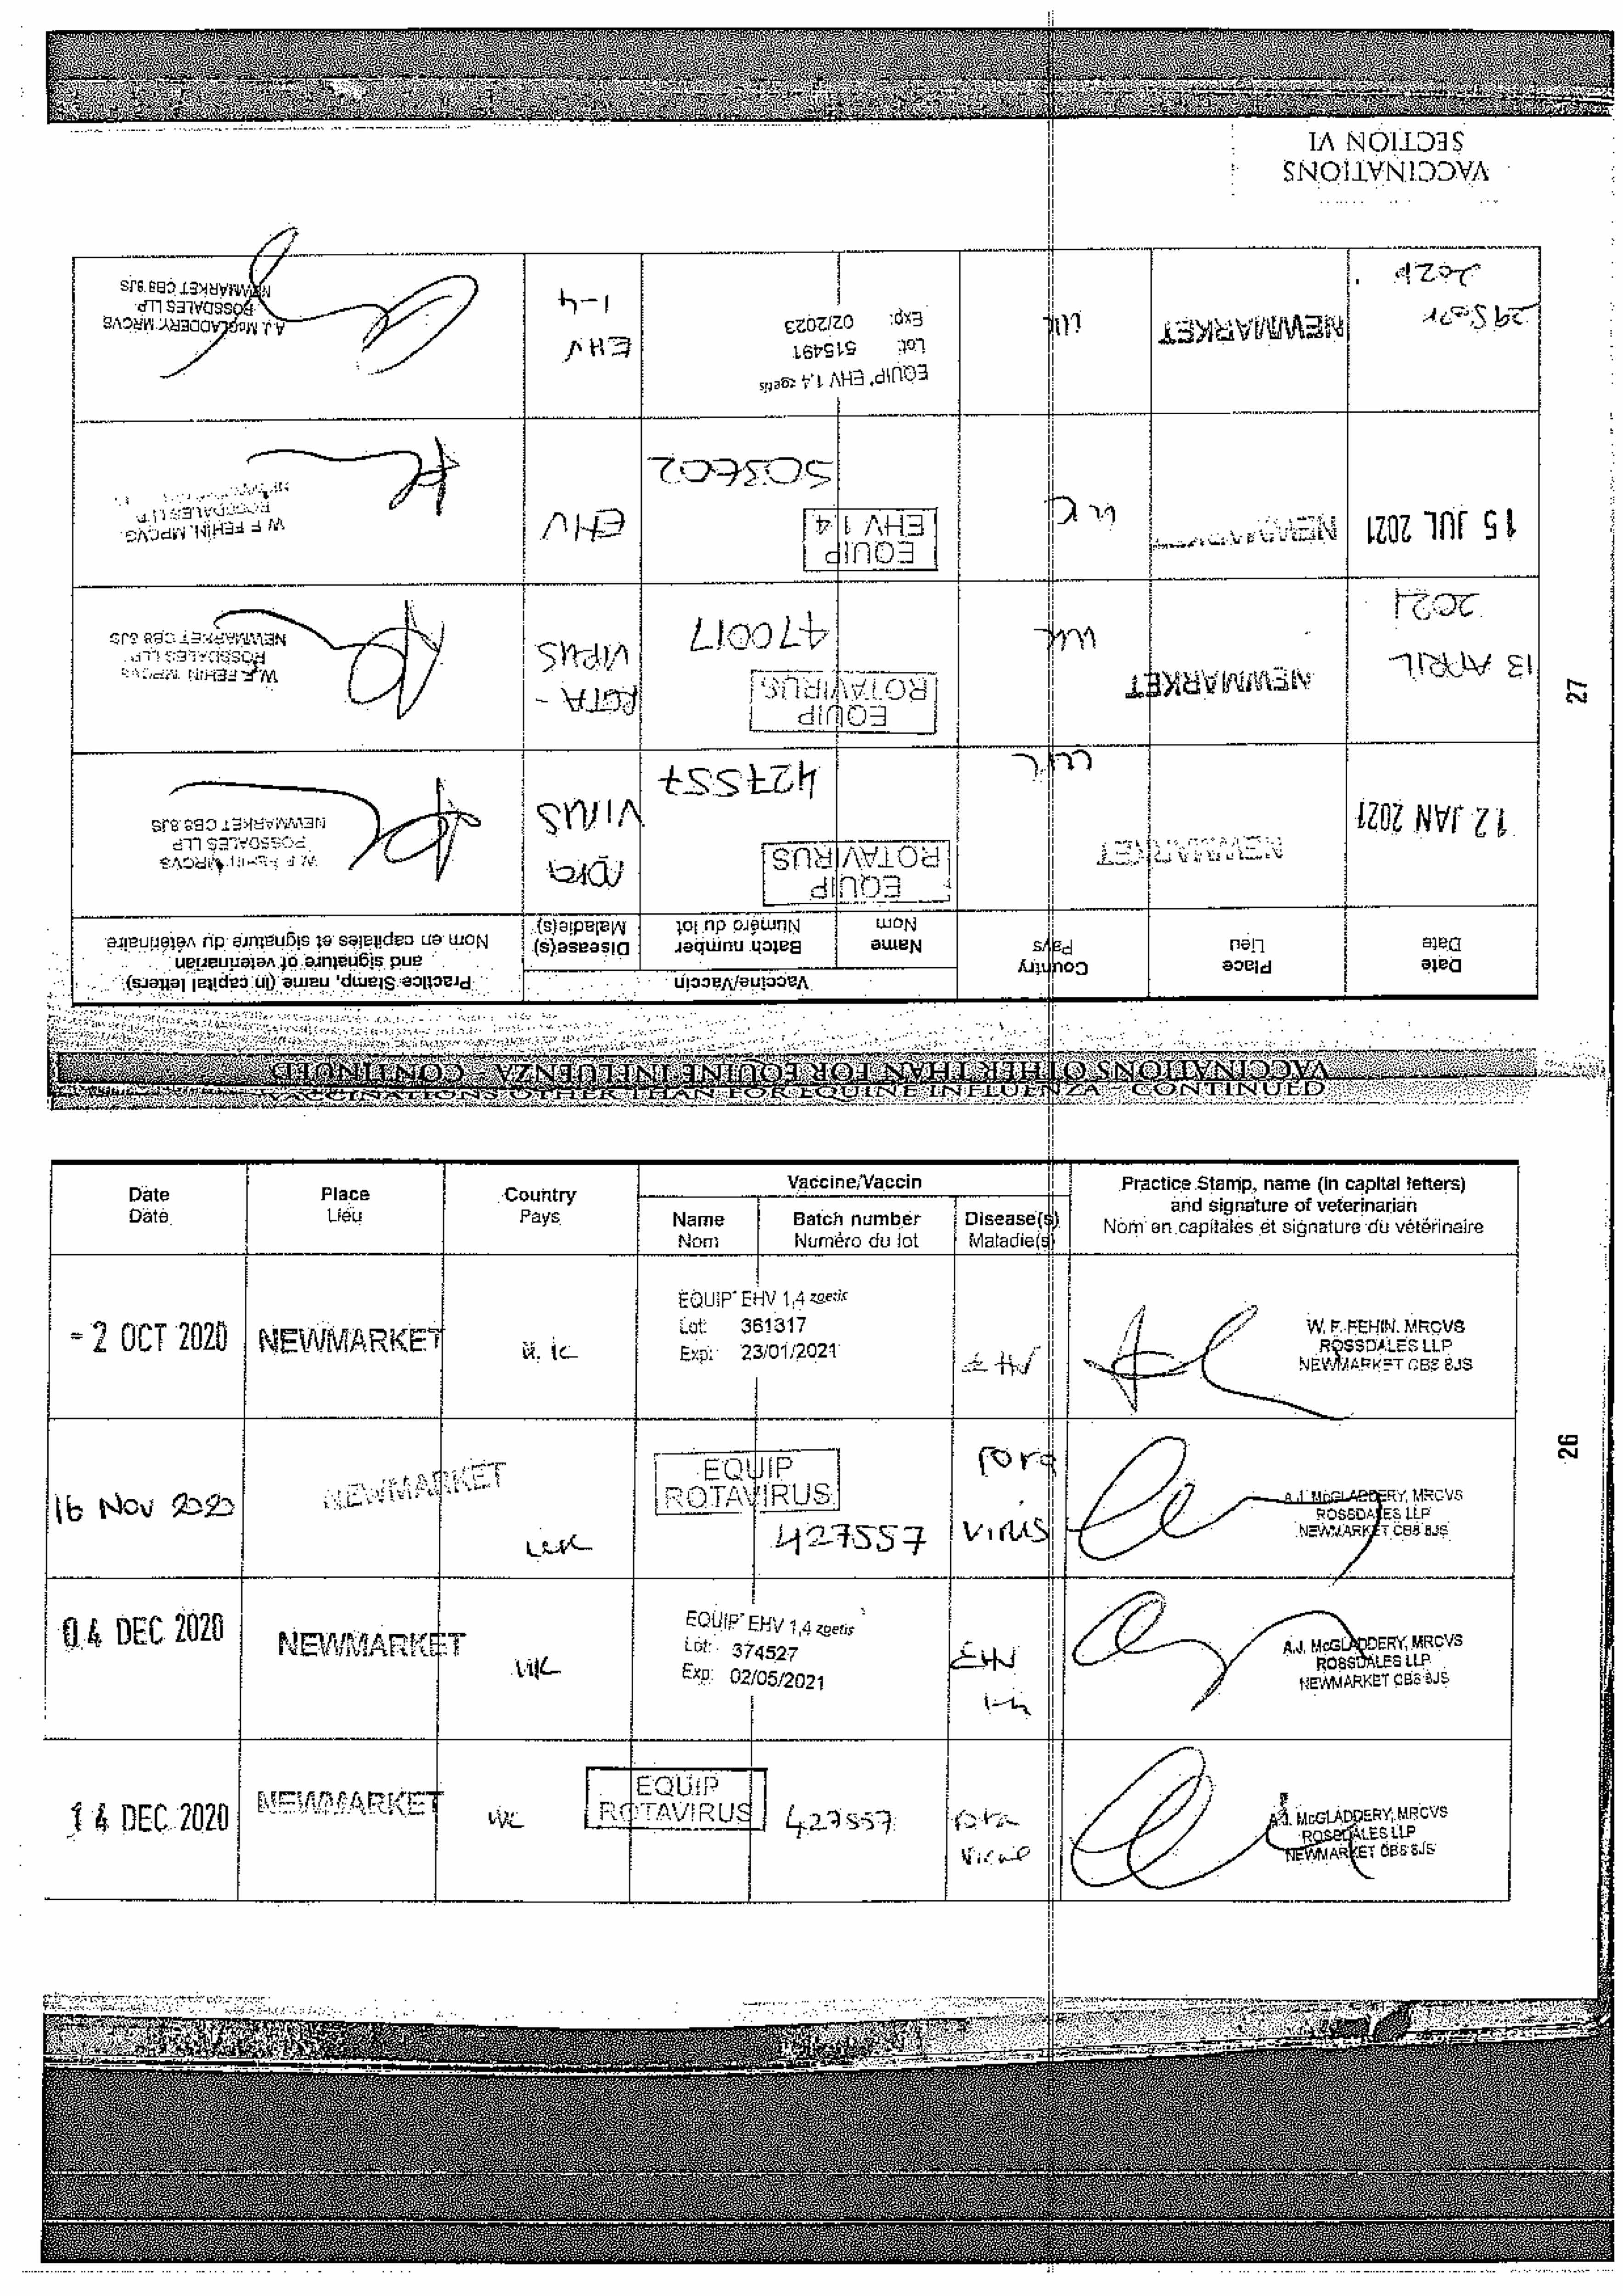 VACCINATIONS
SECTION VI
VACCINATIONS OTHER THAN FOR EQUINE INFLUENZA - CONTINUED
Date
Date
Place
Lieu
Country
Pays
Vaccine/Vaccin
Name
Nom
Batch number
Numéro du lot
Disease(s)
Maladie(s)
Practice Stamp, name (in capital letters)
and signature of veterinarian
Nom en capitales et signature du vétérinaire
12 JAN 2021
NEWMARKET
UK
EQUIP
ROTAVIRUS
427557
rota
VIRUS
W. F. FEHIN, MRCVS
ROSSDALES LLP
NEWMARKET CB8 8JS
13 APRIL
2021
NEWMARKET
UK
EQUIP
ROTAVIRUS
470017
ROTA-
VIRUS
W. F. FEHIN, MRCVS
ROSSDALES LLP
NEWMARKET CB8 8JS
15 JUL 2021
NEWMARKET
UK
EQUIP
EHV 1 4
EHV
W. F. FEHIN, MRCVS
ROSSDALES LLP
NEWMARKET
29 Sept
2021
NEWMARKET
UK
EQUIP® EHV 1,4 zoetis
Lot: 515491
Exp: 02/2023
EHV
1-4
A.J. McGLADDERY, MRCVS
ROSSDALES LLP
NEWMARKET CB8 8JS
27
VACCINATIONS OTHER THAN FOR EQUINE INFLUENZA - CONTINUED
Date
Date
Place
Lieu
Country
Pays
Vaccine/Vaccin
Name
Nom
Batch number
Numéro du lot
Disease(s)
Maladie(s)
Practice Stamp, name (in capital letters)
and signature of veterinarian
Nom en capitales et signature du vétérinaire
- 2 OCT 2020
NEWMARKET
U.K
EQUIP® EHV 1,4 zoetis
Lot: 361317
Exp: 23/01/2021
EHV
W. F. FEHIN, MRCVS
ROSSDALES LLP
NEWMARKET CB8 8JS
16 NOV 2020
NEWMARKET
UK
EQUIP
ROTAVIRUS
427557
rota
virus
A.J. McGLADDERY, MRCVS
ROSSDALES LLP
NEWMARKET CB8 8JS
04 DEC 2020
NEWMARKET
UK
EQUIP® EHV 1,4 zoetis
Lot: 374527
Exp: 02/05/2021
EHV
1-4
A.J. McGLADDERY, MRCVS
ROSSDALES LLP
NEWMARKET CB8 8JS
14 DEC 2020
NEWMARKET
UK
EQUIP
ROTAVIRUS
427557
rota
virus
A.J. McGLADDERY, MRCVS
ROSSDALES LLP
NEWMARKET CB8 8JS
26